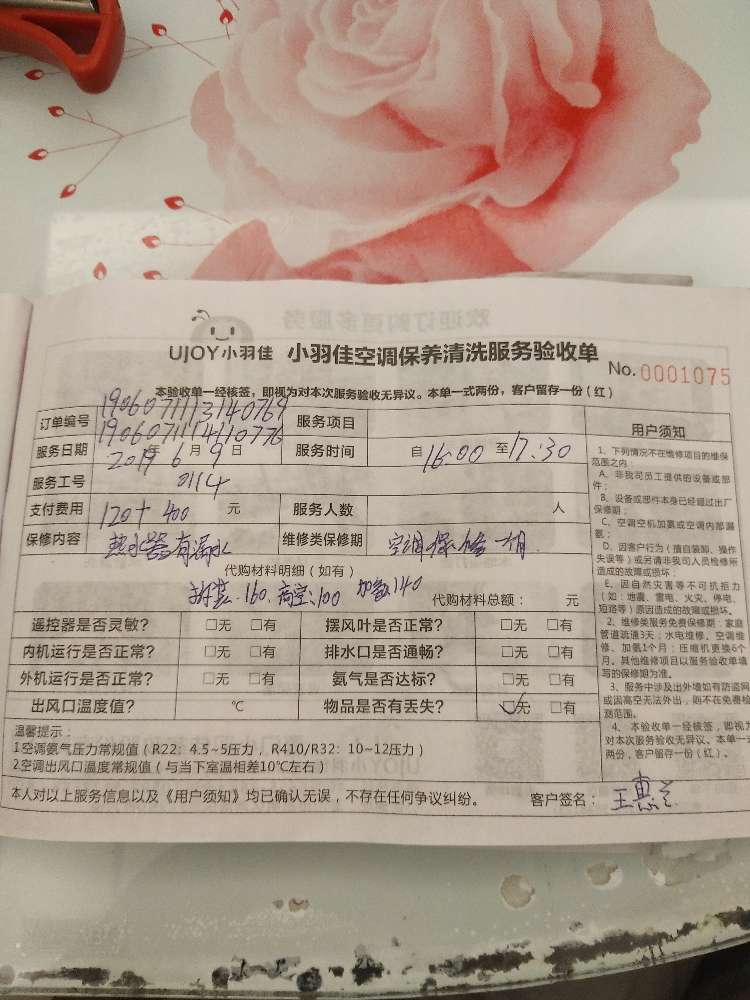 UJOY小羽佳 小羽佳空调保养清洗服务验收单 No.0001075
本验收单一经核签，即视为对本次服务验收无异议。本单一式两份，客户留存一份（红）
订单编号 1906071113140769 服务项目
1906071114110776
服务日期 2019年 6月 9日 服务时间 自 16:00 至 17:30
服务工号 0114
支付费用 120+400 元 服务人数 人
保修内容 热水器有漏水 维修类保修期 空调保修一月
代购材料明细（如有）
拆装:160 高空:100 加氨140 代购材料总额： 元
遥控器是否灵敏? □无 □有 摆风叶是否正常? □无 □有
内机运行是否正常? □无 □有 排水口是否通畅? □无 □有
外机运行是否正常? □无 □有 氨气是否达标? □无 □有
出风口温度值? ℃ 物品是否有丢失? ☑无 □有
温馨提示：
1空调氨气压力常规值（R22：4.5~5压力，R410/R32：10~12压力）
2.空调出风口温度常规值（与当下室温相差10℃左右）
本人对以上服务信息以及《用户须知》均已确认无误，不存在任何争议纠纷。 客户签名：王惠兰
用户须知
1、下列情况不在维修项目的维保
范围之内：
A、非我司员工提供的设备或部
件；
B、设备或部件本身已经超过出厂
保修期；
C、空调空机加氨或空调内部漏
氨；
D、因客户行为（擅自装卸、操作
失误等）或另请非我司人员检修所
造成的故障或损坏；
E、因自然灾害等不可抗拒力
（如：地震、雷电、火灾、停电、
短路等）原因造成的故障或损坏。
2、维修类服务免费保修期：家庭
管道疏通3天；水电维修、空调维
修、加氨1个月；压缩机更换6个
月。其他维修项目以服务验收单填
写的保修期为准。
3、服务中涉及出外墙如有防盗网
或因高空无法外出，则不在免费检
测范围。
4、本验收单一经核签，即视为
对本次服务验收无异议。本单一式
两份，客户留存一份（红）。